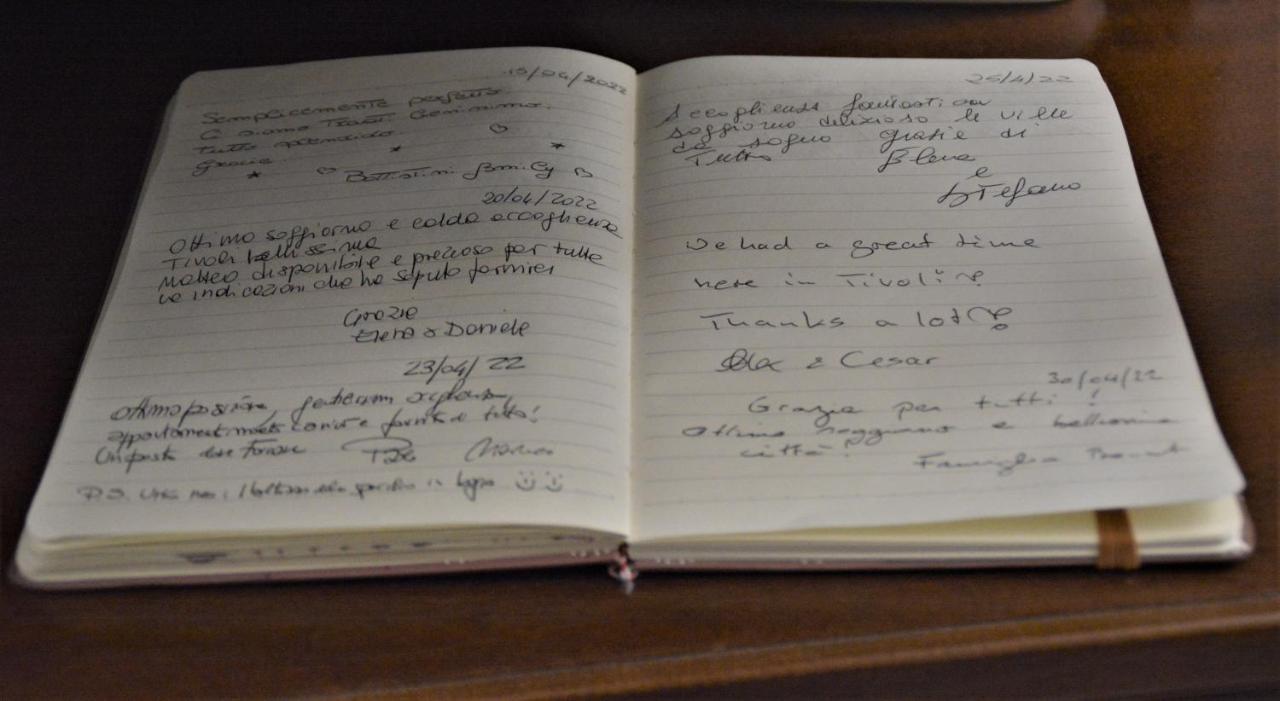 15/04/2022
Semplicemente perfetto.
Ci siamo Trovati Benissimo.
tutto splendido
Grazie.
Battistini family
20/04/2022
Ottimo soggiorno e calda accoglienza
Tivoli bellissima
Matteo disponibile e prezioso per tutte
le indicazioni che ha saputo fornirci
Grazie
Elena & Daniele
23/04/22
Ottima posizione,
appartamento e fornito di tutto!
P.S.
25/4/22
Accoglienza fantastica
soggiorno delizioso le ville
da sogno grazie di
Tutto Elena
e
Stefano
We had a great time
here in Tivoli
Thanks a lot
& Cesar
30/04/22
Grazie per tutti!
Ottimo soggiorno e bellissima
città! Famiglia